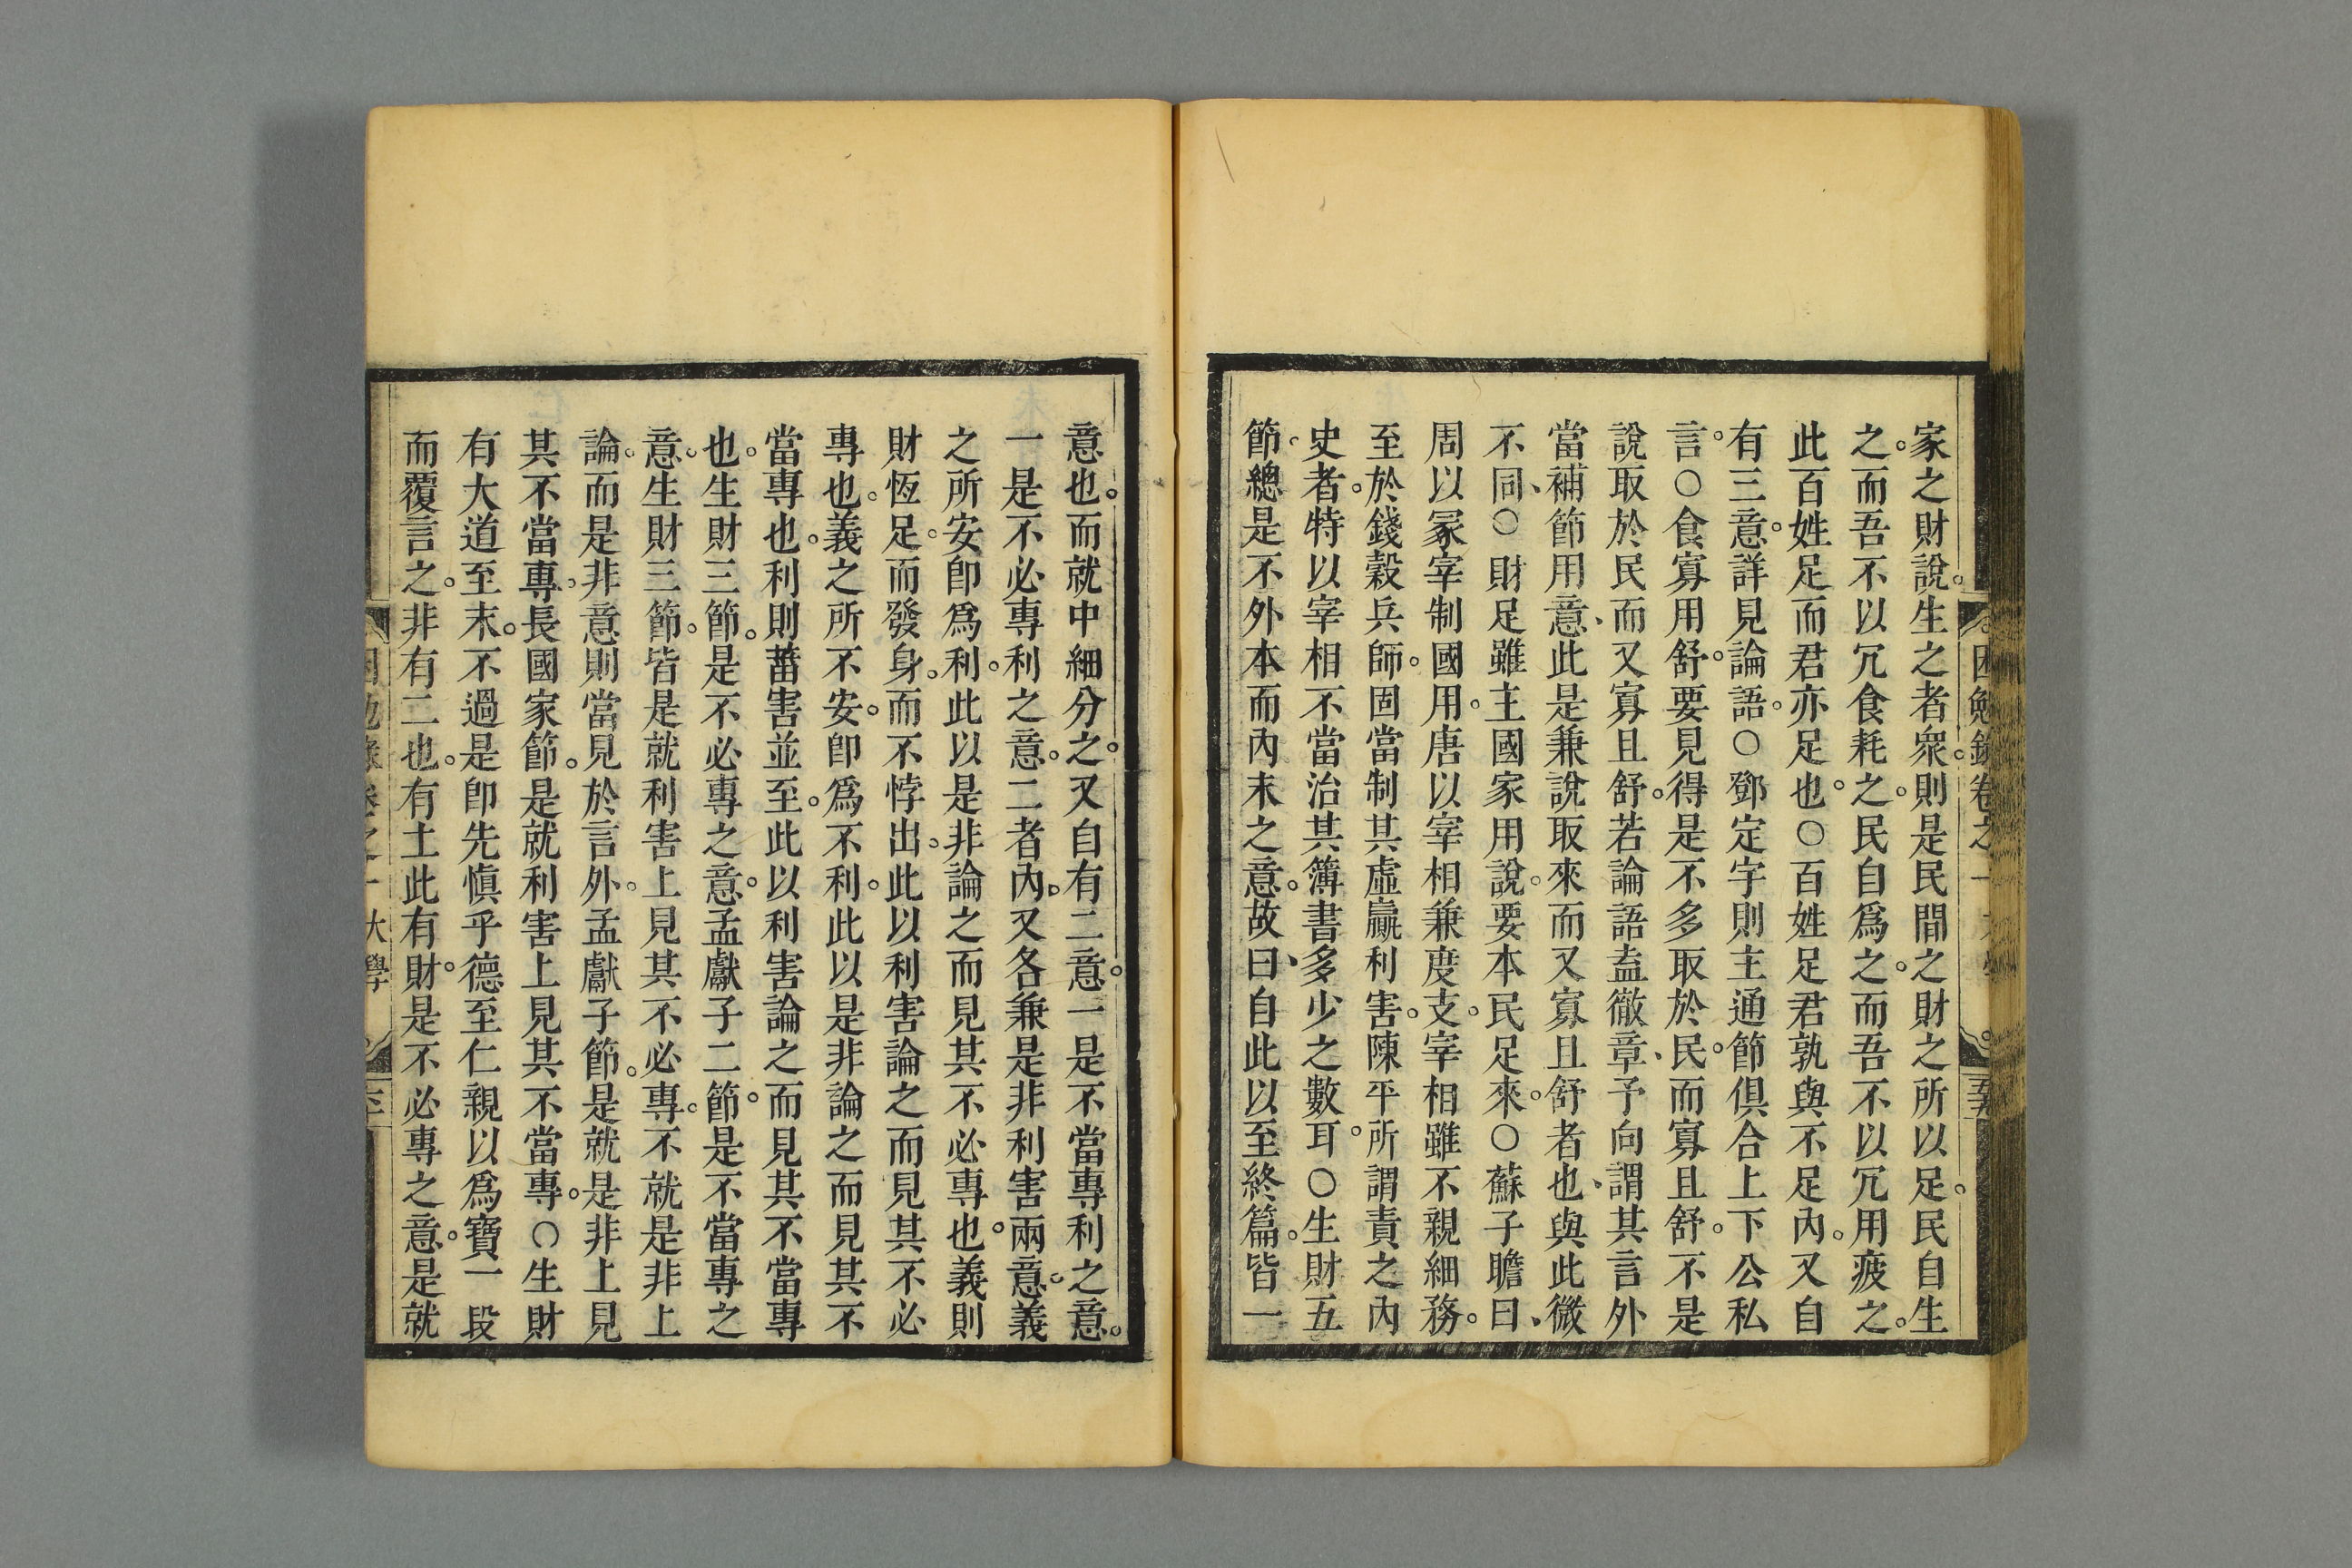 家之財說。生之者衆。則是民間之財之所以足。民自生
之。而吾不以冗食耗之。民自爲之。而吾不以冗用疲之。
此百姓足而君亦足也。○百姓足君孰與不足內。又自
有三意。詳見論語。○鄧定宇則主通節俱合上下公私
言。○食寡用舒。要見得是不多取於民。而寡且舒。不是
說取於民而又寡且舒。若論語盍徹章、予向謂其言外
當補節用意、此是兼說取來而又寡且舒者也、與此微
不同、○財足雖主國家用說。要本民足來。○蘇子瞻曰、
周以冢宰制國用。唐以宰相兼度支。宰相雖不親細務。
至於錢穀兵師。固當制其虛贏利害。陳平所謂責之內
史者。特以宰相不當治其簿書多少之數耳。○生財五
節。總是不外本而內末之意。故曰、自此以至終篇。皆一
意也。而就中細分之。又自有二意。一是不當專利之意。
一是不必專利之意。二者內。又各兼是非利害兩意。義
之所安卽爲利。此以是非論之而見其不必專也。義則
財恆足。而發身。而不悖出。此以利害論之而見其不必
專也。義之所不安。卽爲不利。此以是非論之而見其不
當專也。利則菑害並至。此以利害論之而見其不當專
也。生財三節。是不必專之意。孟獻子二節。是不當專之
意。生財三節。皆是就利害上見其不必專。不就是非上
論。而是非意則當見於言外。孟獻子節。是就是非上見
其不當專。長國家節。是就利害上見其不當專。○生財
有大道至末。不過是卽先愼乎德至仁親以爲寶一段
而覆言之。非有二也。有土此有財。是不必專之意。是就